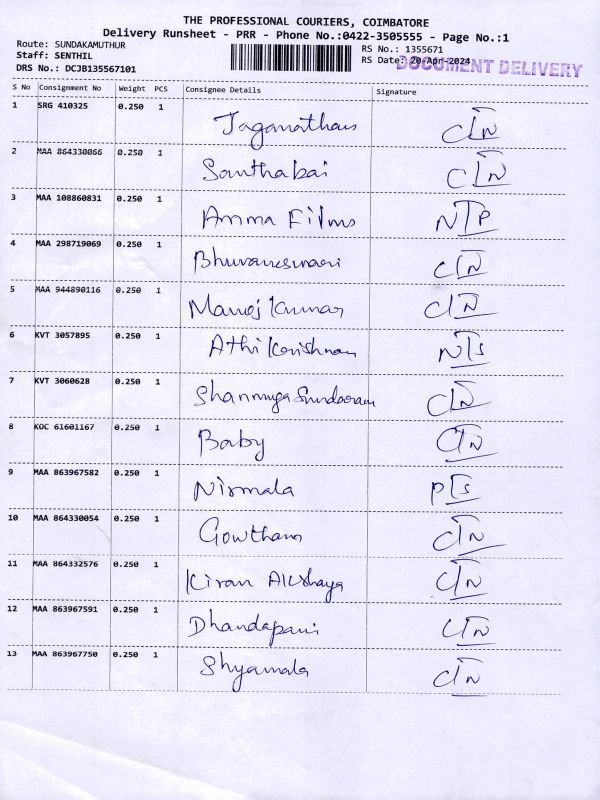 THE PROFESSIONAL COURIERS, COIMBATORE
Delivery Runsheet - PRR - Phone No.:0422-3505555 - Page No.:1
Route: SUNDAKAMUTHUR
Staff: SENTHIL
DRS No.: DCJB135567101
RS No.: 1355671
RS Date: 20-Apr-2024
DOCUMENT DELIVERY
S No Consignment No Weight PCS Consignee Details Signature
1 SRG 410325 0.250 1 Jaganathan C/N
2 MAA 864330066 0.250 1 Santhabai C/N
3 MAA 108860831 0.250 1 Amma Films N/P
4 MAA 298719069 0.250 1 Bhuvaneswari C/N
5 MAA 944890116 0.250 1 Manoj Kumar C/N
6 KVT 3057895 0.250 1 Athi Krishnan N/S
7 KVT 3060628 0.250 1 Shanmuga Sundaram C/N
8 KOC 61601167 0.250 1 Baby C/N
9 MAA 863967582 0.250 1 Nirmala P/S
10 MAA 864330054 0.250 1 Gowtham C/N
11 MAA 864332576 0.250 1 Kiran Akshaya C/N
12 MAA 863967591 0.250 1 Dhandapani C/N
13 MAA 863967750 0.250 1 Shyamala C/N